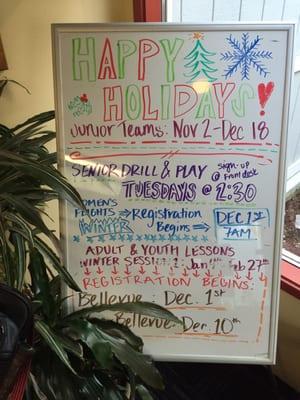 HAPPY
HOLIDAYS!
Junior Teams: Nov 2-Dec 18
SENIOR DRILL & PLAY
sign-up
@ Front desk
TUESDAYS @ 2:30
FLIGHTS ⇒ Registration
WINTER Begins ⇒
DEC 1st
7AM
ADULT & YOUTH LESSONS
WINTER SESSION: Jan 27th
REGISTRATION BEGINS:
Bellevue: Dec. 1st
Bellevue: Dec. 10th